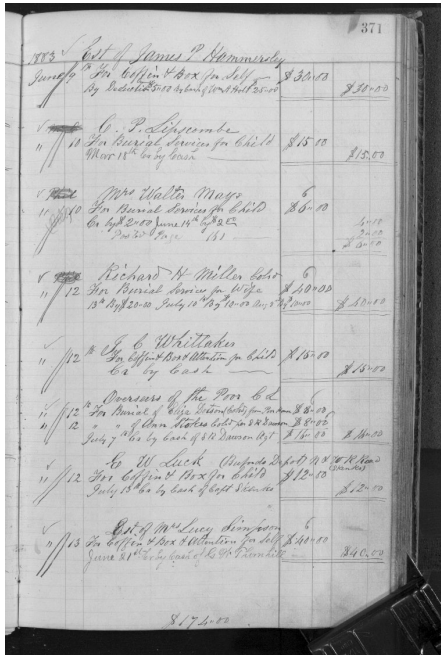 371
1883 Est of James P Hammersley
June 9th For Coffin & Box for Self $30.00
By Deduction $5.00 25.00 $30.00
C. P. Lipscombe
" 10 For Burial Services for Child $15.00
Nov 18th Cr by Cash $15.00
Mrs Walter Mayo 6
" 10 For Burial Services for Child $6.00
Cr by $2.00 June 14th by $2.00
Page 151
Richard H Miller Cold 6
" 12 For Burial Services for Wife $40.00
13th By $20.00 July 10th By $10.00 $40.00
C Whittaker
" 12th For Coffin & Box & Attention for Child $15.00
Cr by Cash $15.00
Overseers of the Poor C L 6
" 12th For Burial of $8.00
" 12 " " of Ann Stokes Cold for S R Dawson $8.00
July 7th Cr by Cash of S R Dawson Agt $16.00 $16.00
C W Luck (Bufords Depot) N & W R Road
" 12 For Coffin & Box for Child $12.00
July 13th Cr by Cash of Capt $12.00
Est of Mrs Lucy Simpson 6
" 13 For Coffin & Box & Attention for Self $40.00
June 21st Cr by Cash of Thornhill $40.00
$174.00